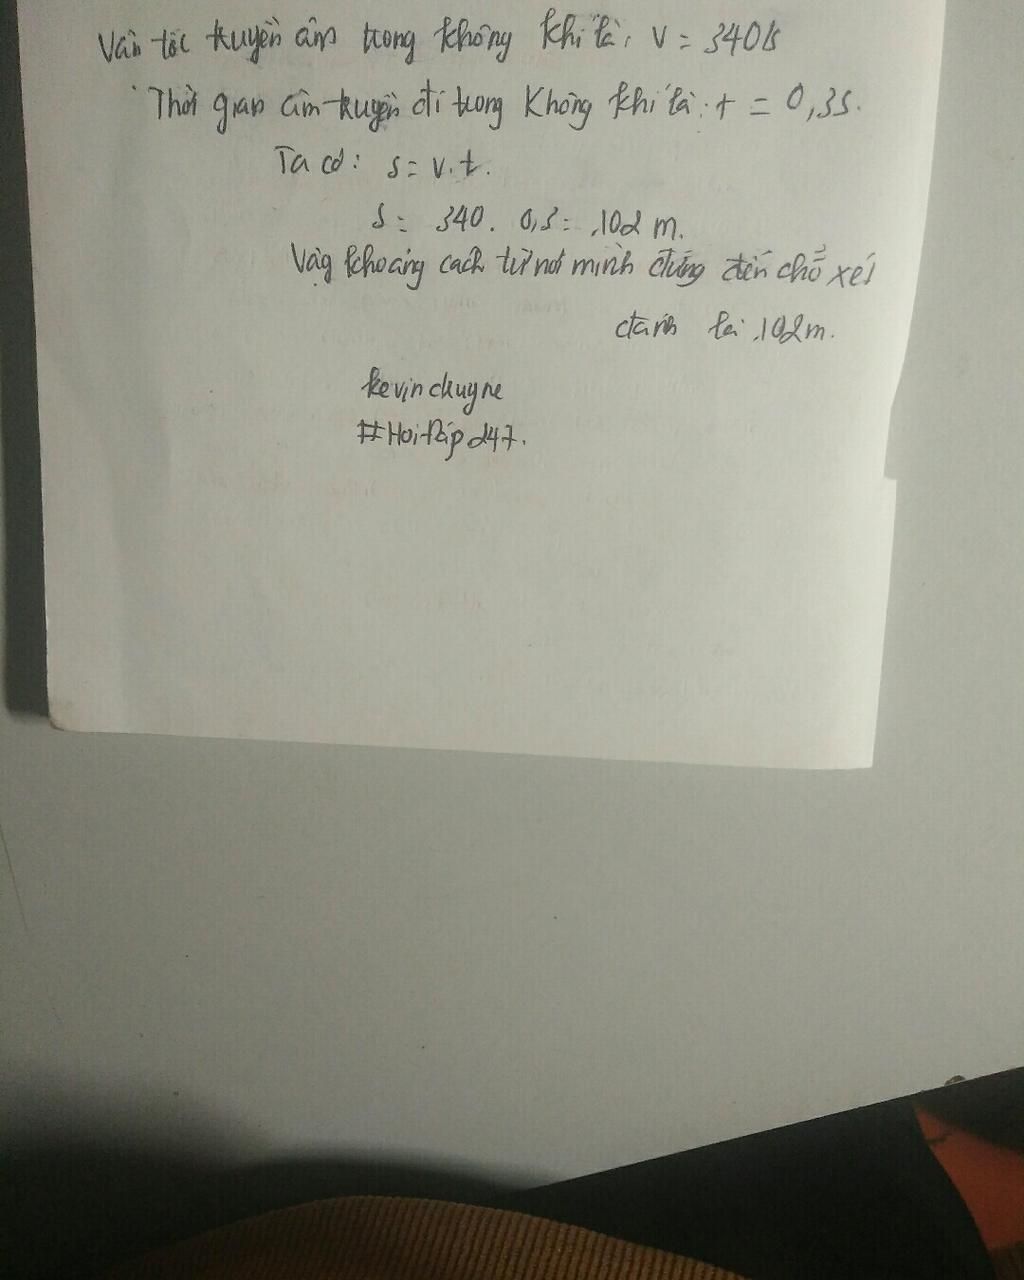 Vận tốc truyền âm trong không khí là: v = 340/s
Thời gian âm truyền đi trong Không khí là: t = 0,3s.
Ta có: s = v.t.
s = 340. 0,3 = 102 m.
Vậy khoảng cách từ nơi mình đứng đến chỗ xét
đánh là 102m.
kevinchuyne
#Hoi Đáp 247.